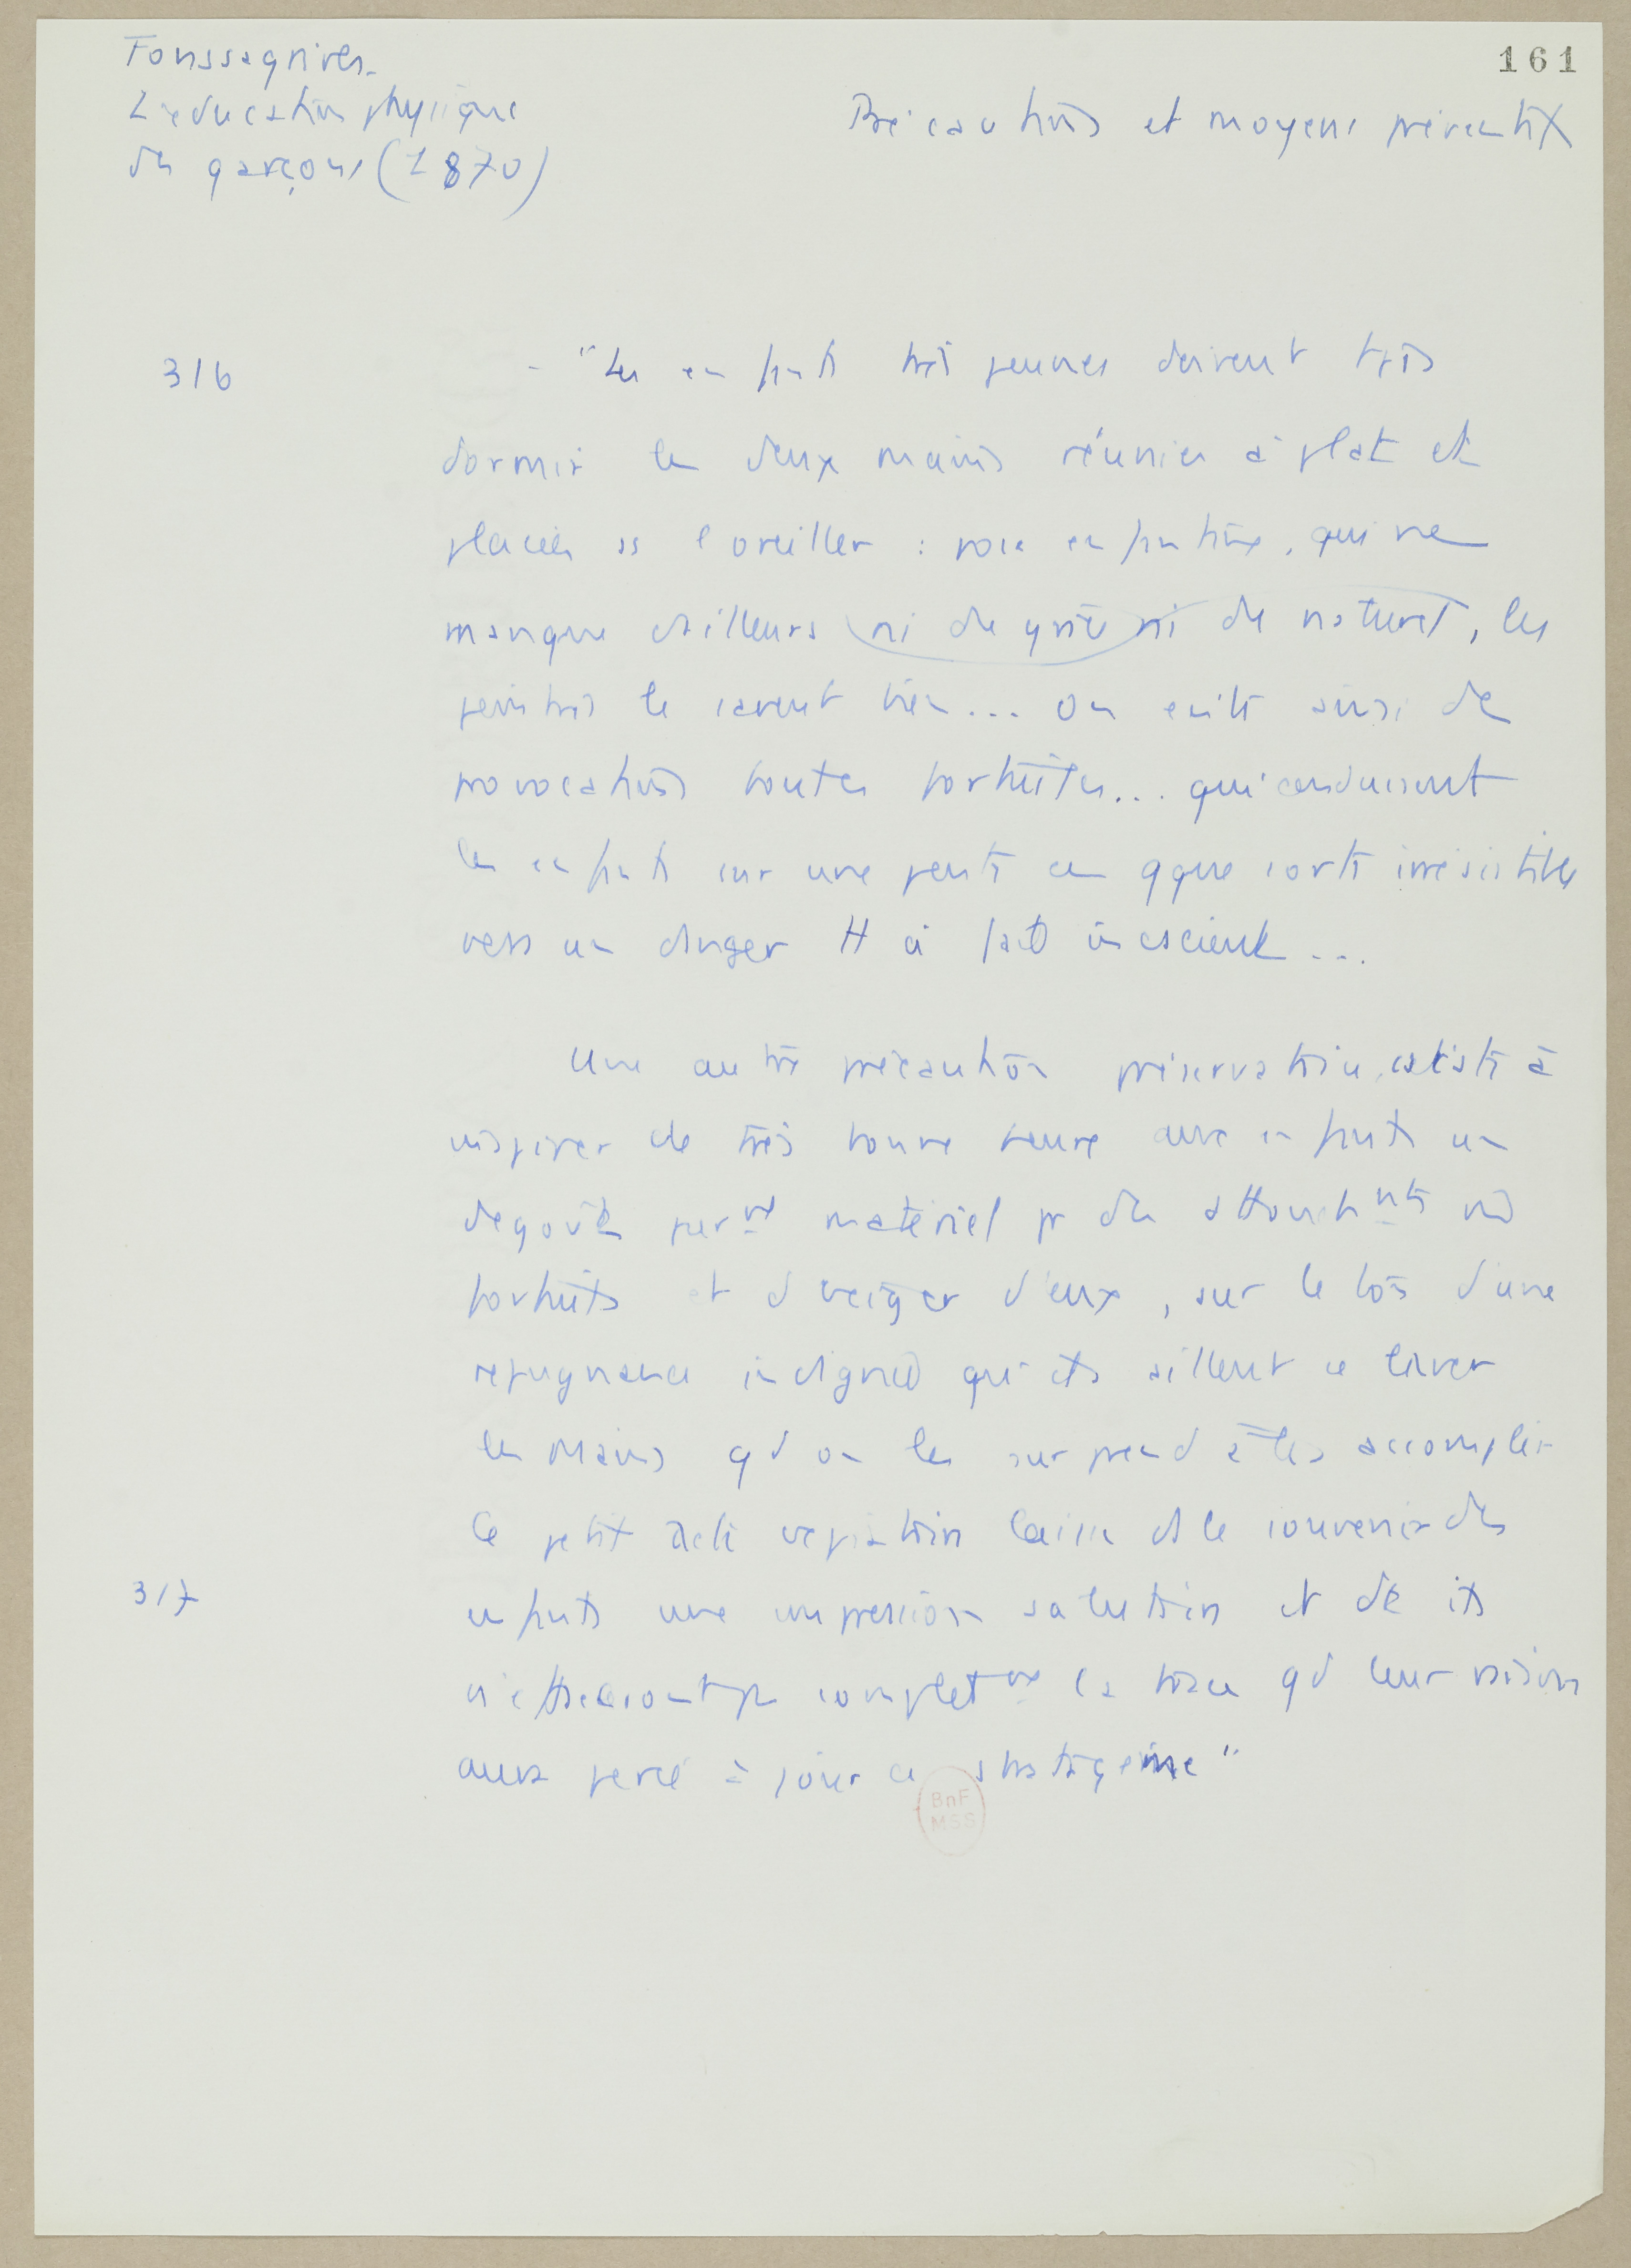 Fonssagrives.
161
L'éducation physique
des garçons (1870)
Précautions et moyens préventifs
316
- "Les enfants très jeunes doivent tjrs
dormir les deux mains réunies à plat et
placées ss l'oreiller : pose enfantine, qui ne
manque d'ailleurs ni de grâce ni de naturel, les
peintres le savent bien... On évite ainsi des
provocations toutes fortuites... qui conduisent
les enfants sur une pente en qque sorte irrésistible
vers un danger tt à fait inconscient...
Une autre précaution préservatrice consiste à
inspirer de très bonne heure aux enfants un
dégoût purmt matériel pr des attouchmts
fortuits et d'exiger d'eux, sur le ton d'une
répugnance indignée qu'ils aillent se laver
les mains qd on les surprend à les accomplir
Ce petit acte expiatoire laisse ds le souvenir des
317
enfants une impression salutaire et dt ils
n'effaceront pas completmt la trace qd leur raison
aura percé à jour ce stratagème"
BnF
MSS